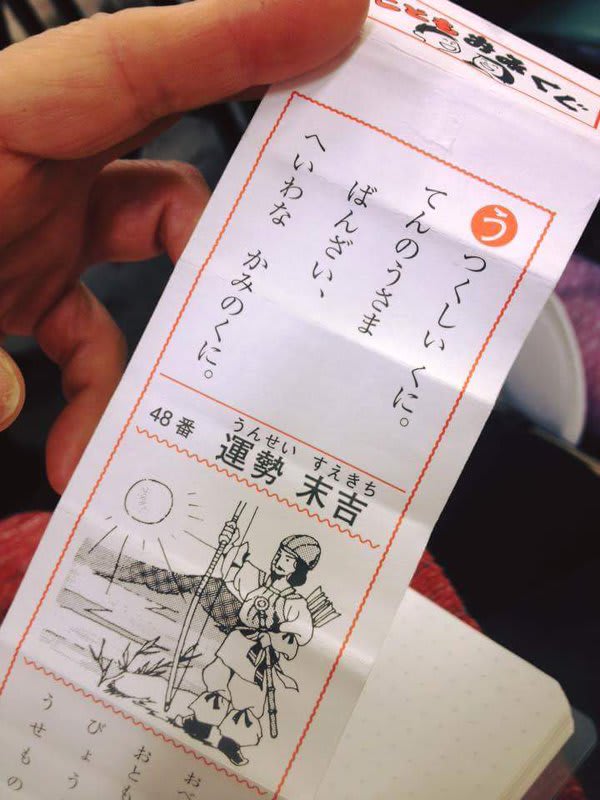 うつくしい くに。
てんのうさま
ばんざい、
へいわな かみのくに。
48番
うんせい すえきち
運勢 末吉
おべ
おとも
びょう
うせもの